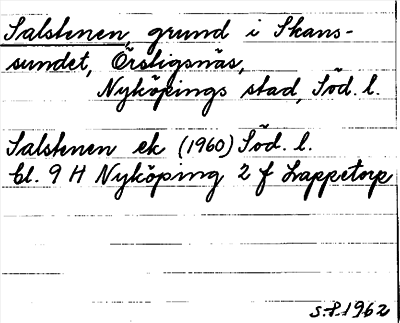 Salstenen, grund i Skans-
sundet, Örstigsnäs,
Nyköpings stad, Söd. l.
Salstenen ek (1960) Söd. l.
bl. 9 H Nyköping 2 f Lappetorp
S.F. 1962